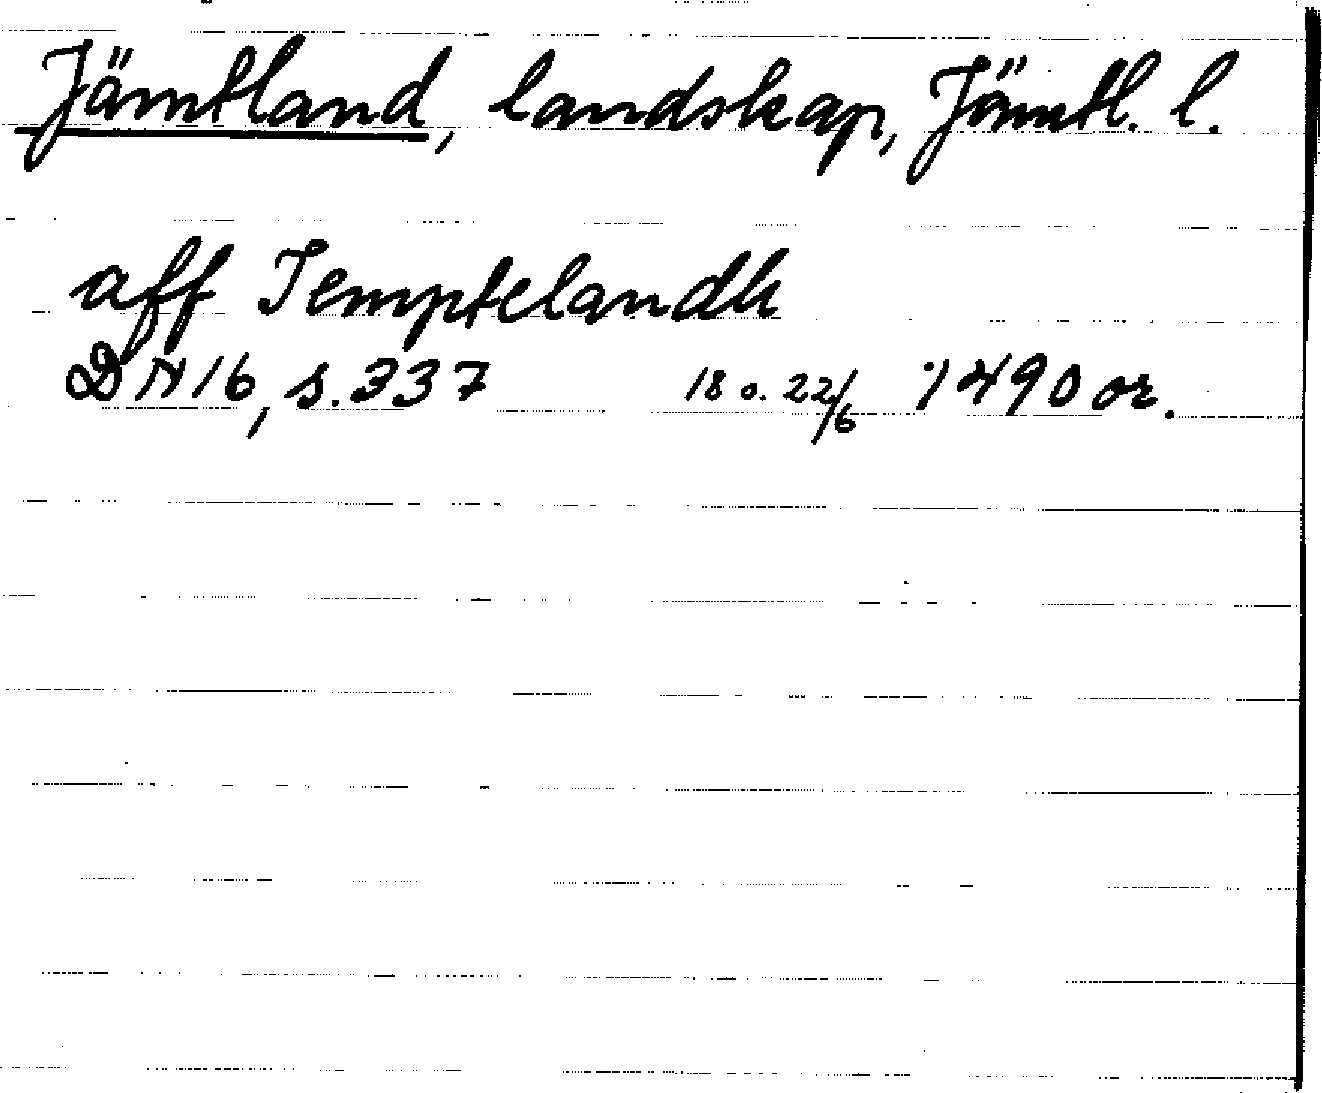 Jämtland, landskap, Jämtl. l.
aff Jemptelandh
DN 16, s. 337 18 o. 22/6 1490 or.